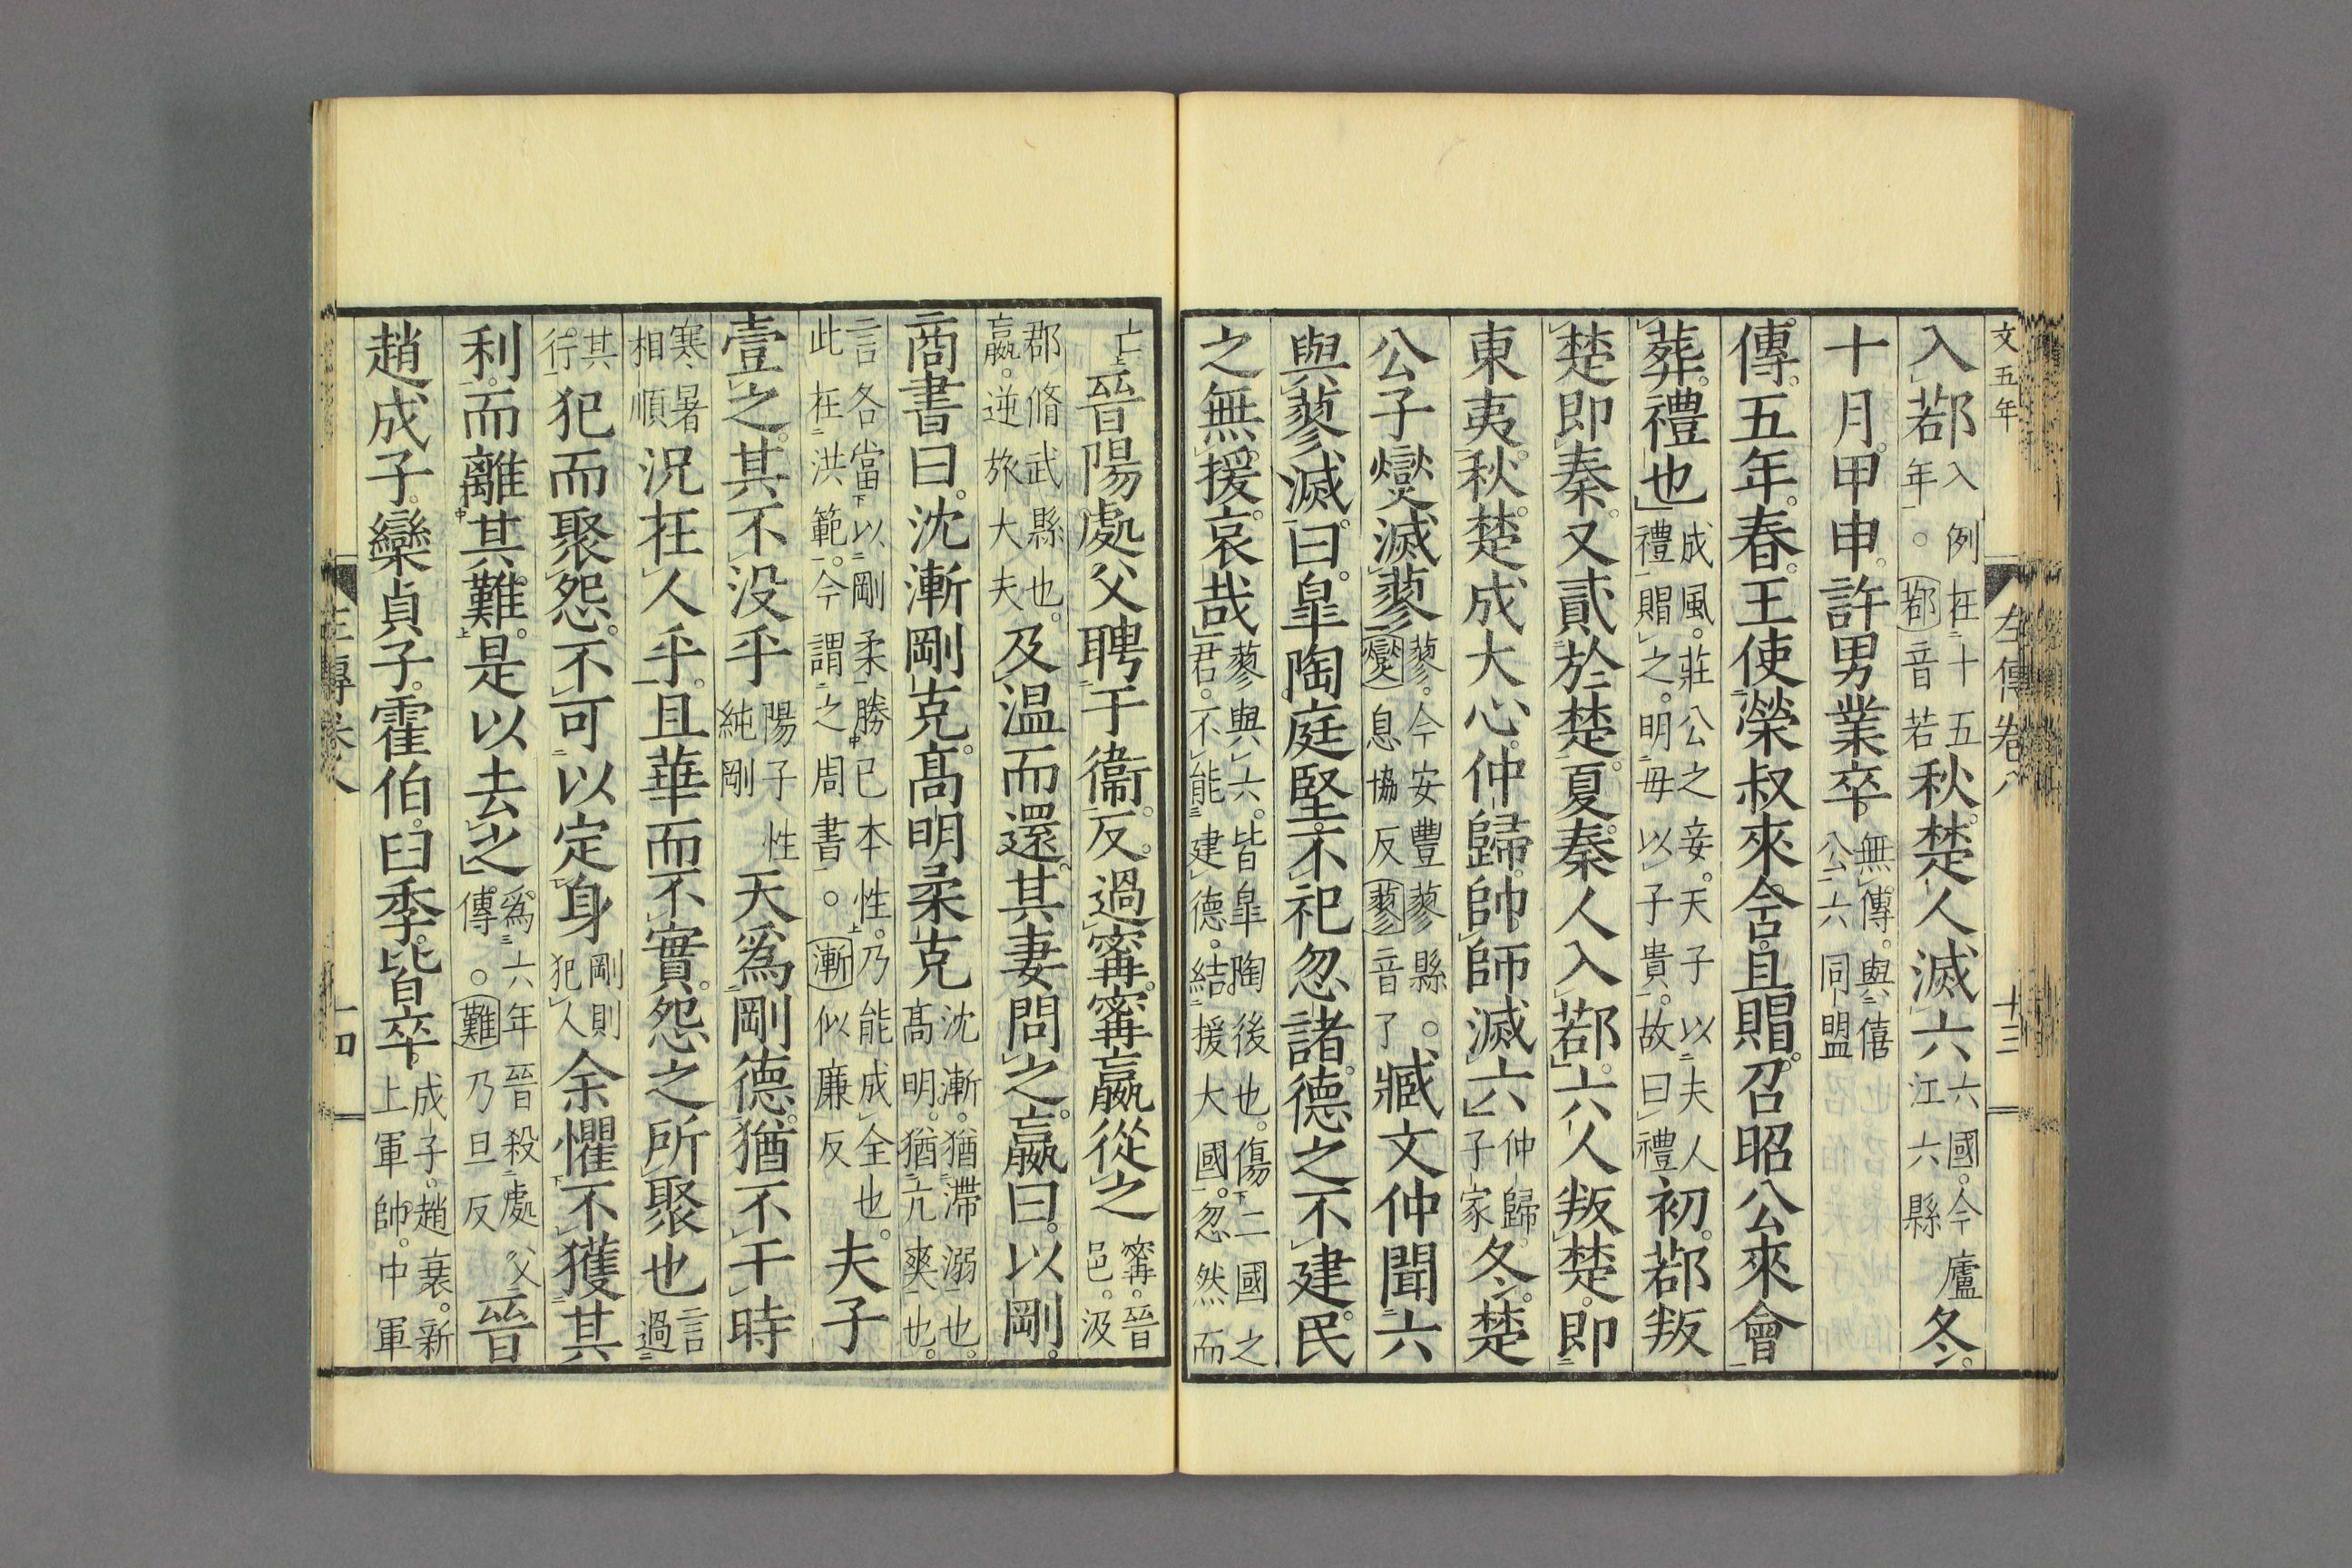 文五年
左傳卷八
十三
入鄀入例在十五年。鄀音若秋。楚人滅六六國。今廬江六縣冬。
十月。甲申。許男業卒。無傳。與僖公六同盟
傳。五年。春。王使榮叔來含。且賵。召昭公來會
葬。禮也成風。莊公之妾。天子以夫人禮賵之。明毋以子貴。故曰禮初。鄀叛
楚即秦。又貳於楚。夏。秦人入鄀。六人叛楚。即
東夷。秋。楚成大心。仲歸。帥師滅六仲歸。子家冬。楚
公子燮滅蓼蓼。今安豐蓼縣。燮息協反蓼音了。臧文仲聞六
與蓼滅。曰。皐陶庭堅。不祀忽諸。德之不建。民
之無援。哀哉蓼與六。皆皐陶後也。傷二國之君。不能建德。結援大國。忽然而
亡晉陽處父聘于衞。反。過甯。甯嬴從之甯。晉邑。汲
郡脩武縣也。嬴。逆旅大夫。及温而還。其妻問之。嬴曰。以剛。
商書曰。沈漸剛克。髙明柔克沈漸。猶滯溺也。髙明。猶亢爽也。
言各當以剛柔勝己本性。乃能成全也。此在洪範。今謂之周書。漸似廉反夫子
壹之。其不没乎陽子性純剛天爲剛德。猶不干時
寒暑相順況在人乎。且華而不實。怨之所聚也言過
其行。犯而聚怨。不可以定身剛則犯人余懼不獲其
利。而離其難。是以去之爲六年晉殺處父傳。難乃旦反晉
趙成子。欒貞子。霍伯。臼季。皆卒。成子。趙衰。新上軍帥。中軍
左傳卷八
十四